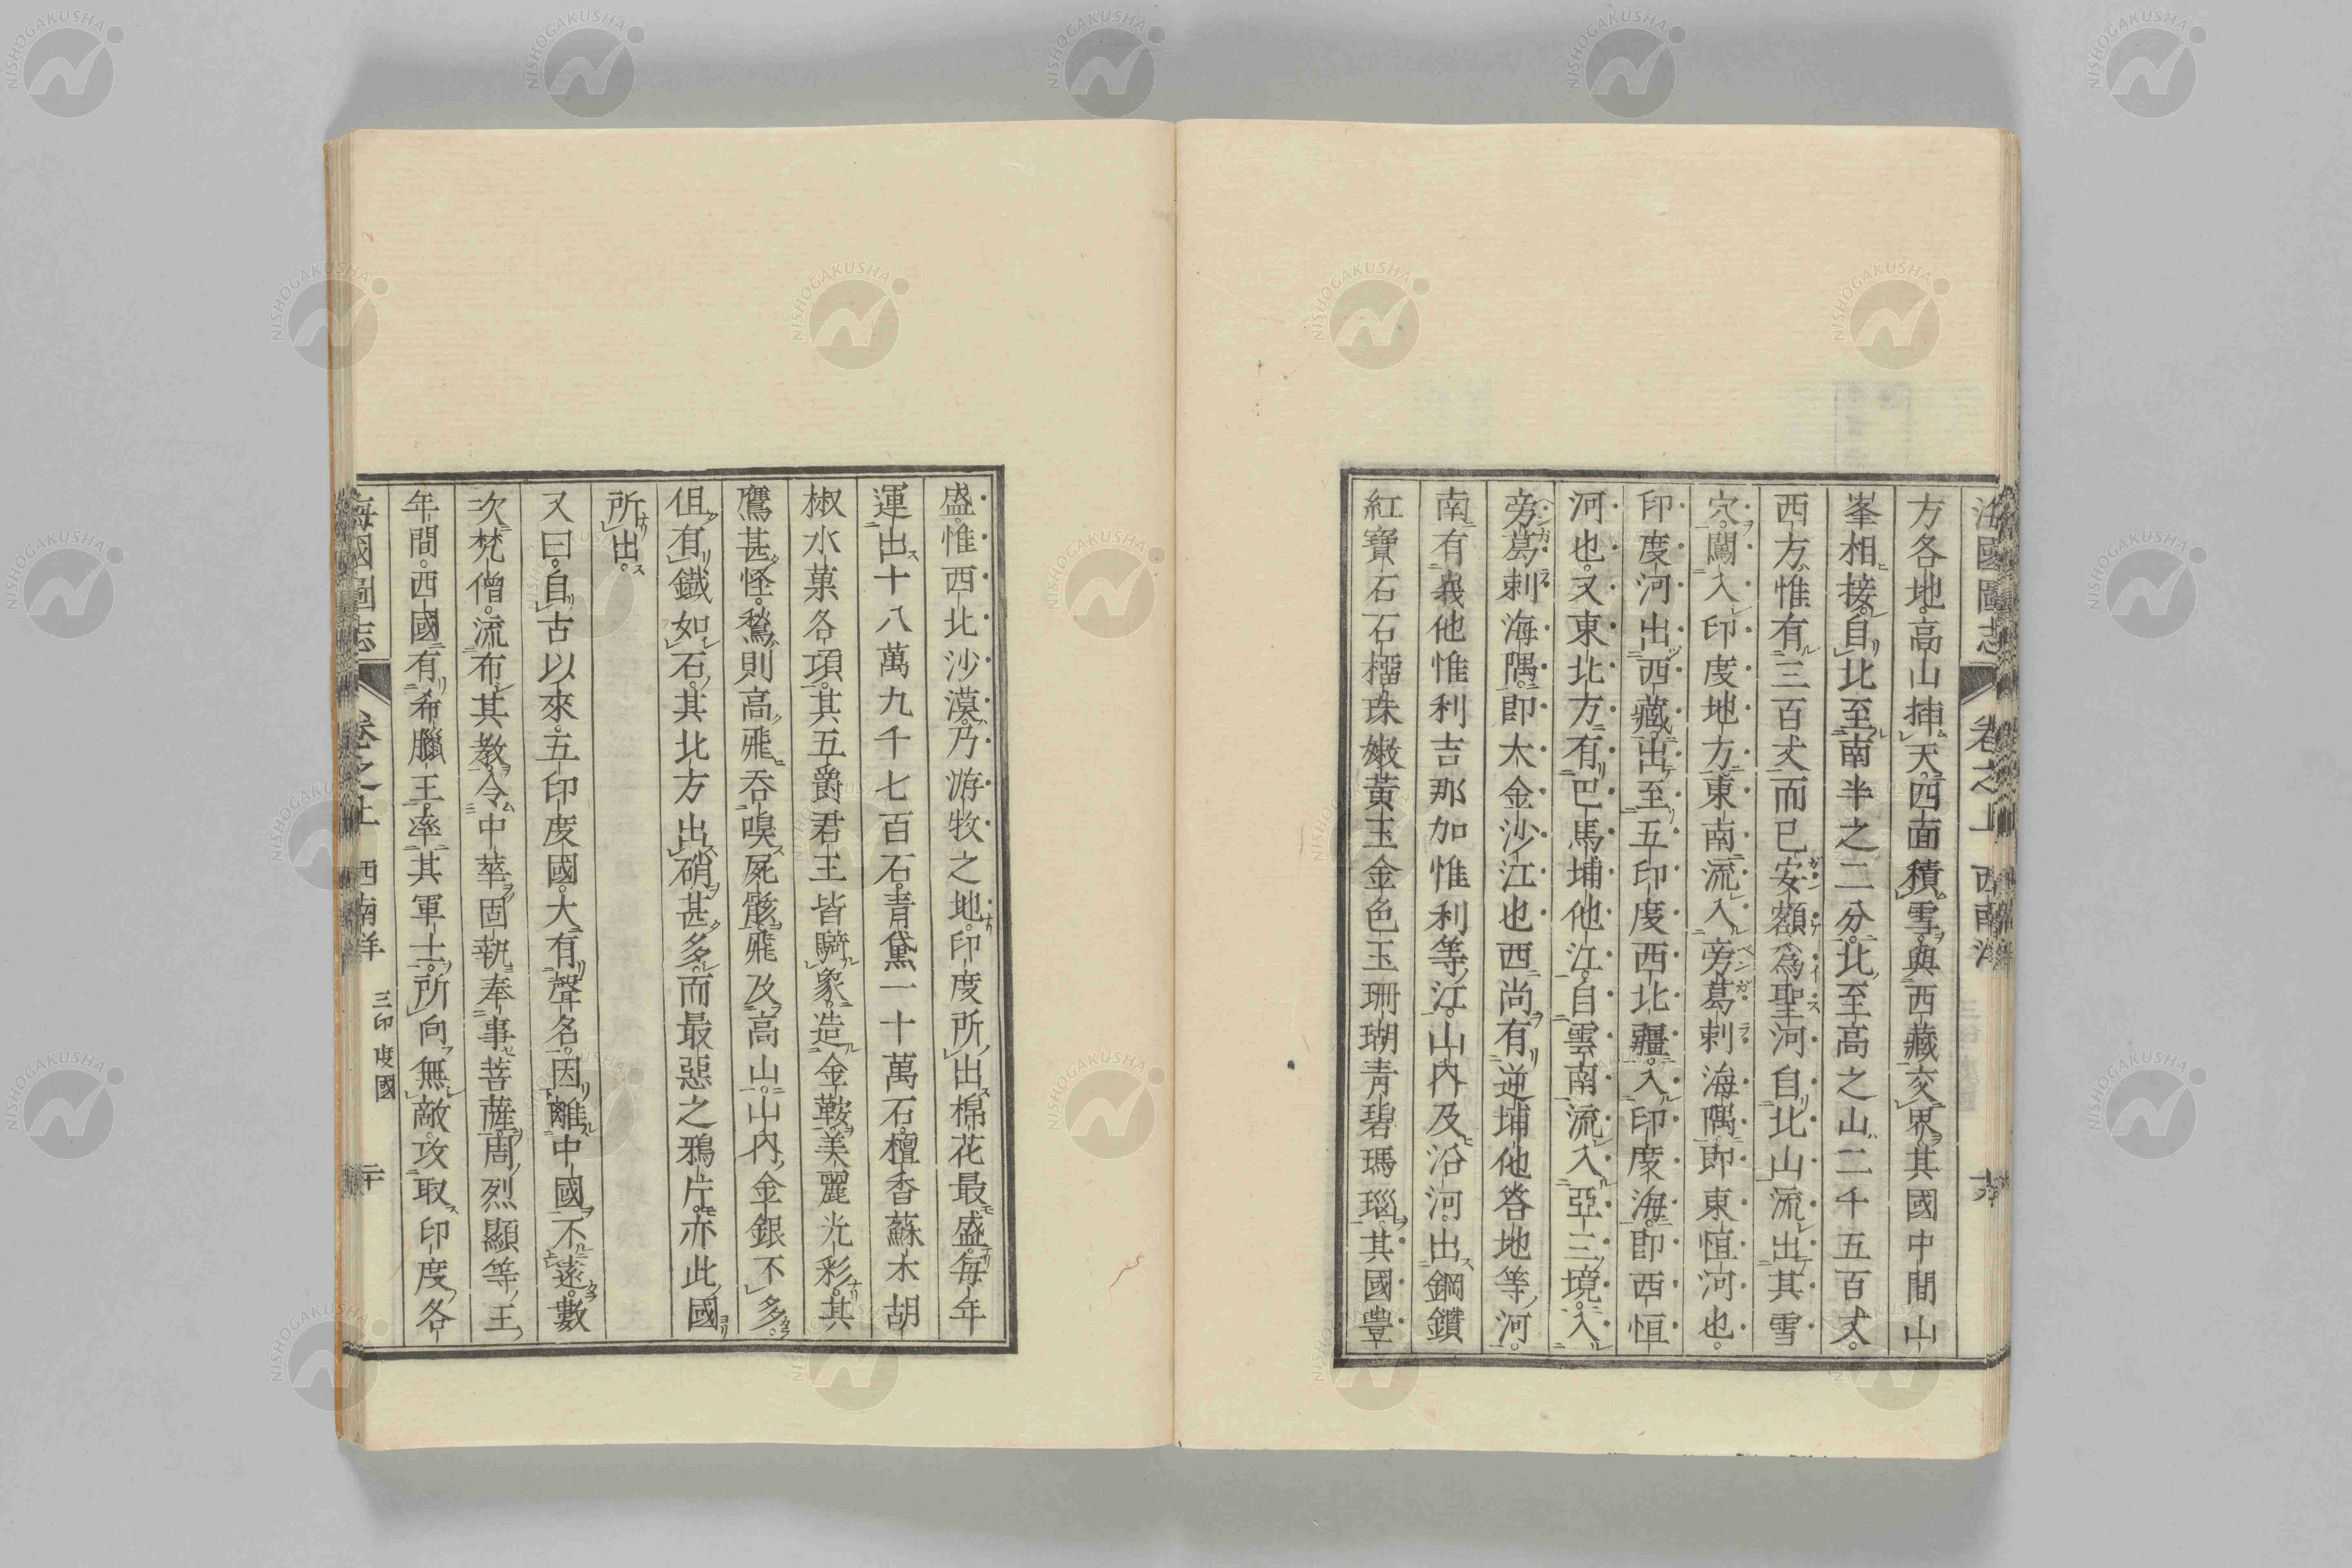 方各地。高山揷天。四面積雪。與西藏交界。其國中間山
峯相接。自北至南半之二分。北至高之山。二千五百丈。
西方惟有三百丈而已。安額爲聖河。自北山流出。其雪
穴。闖入印度地方。東南流入旁葛剌海隅。即東恒河也。
印度河出西藏。出至五印度西北疆。入印度海。即西恒
河也。又東北方有巴馬埔他江。自雲南流入亞三境。入
旁葛剌海隅。即大金沙江也。西尚有逆埔他咎地等河。
南有義他惟利吉那加惟利等江。山內及沿河。出鋼鑽
紅寶石石榴珠嫩黃玉金色玉珊瑚青碧瑪瑙。其國豐
盛。惟西北沙漠。乃游牧之地。印度所出棉花最盛。每年
運出十八萬九千七百石。青黛一十萬石。檀香蘇木胡
椒水菓各項。其五爵君王皆騎象。造金鞍美麗光彩。其
鷹甚怪。鶖則高飛。吞嗅死骸。飛及高山。山內金銀不多。
但有鐵如石。其北方出硝甚多。而最惡之鴉片。亦此國
所出。
又曰。自古以來。五印度國。大有聲名。因離中國不遠。數
次梵僧。流布其教。令中華固執奉事菩薩。周烈顯等王
年間。西國有希臘王。率其軍士。所向無敵。攻取印度各
海國圖志 卷之上 西南洋 三印度國 二十